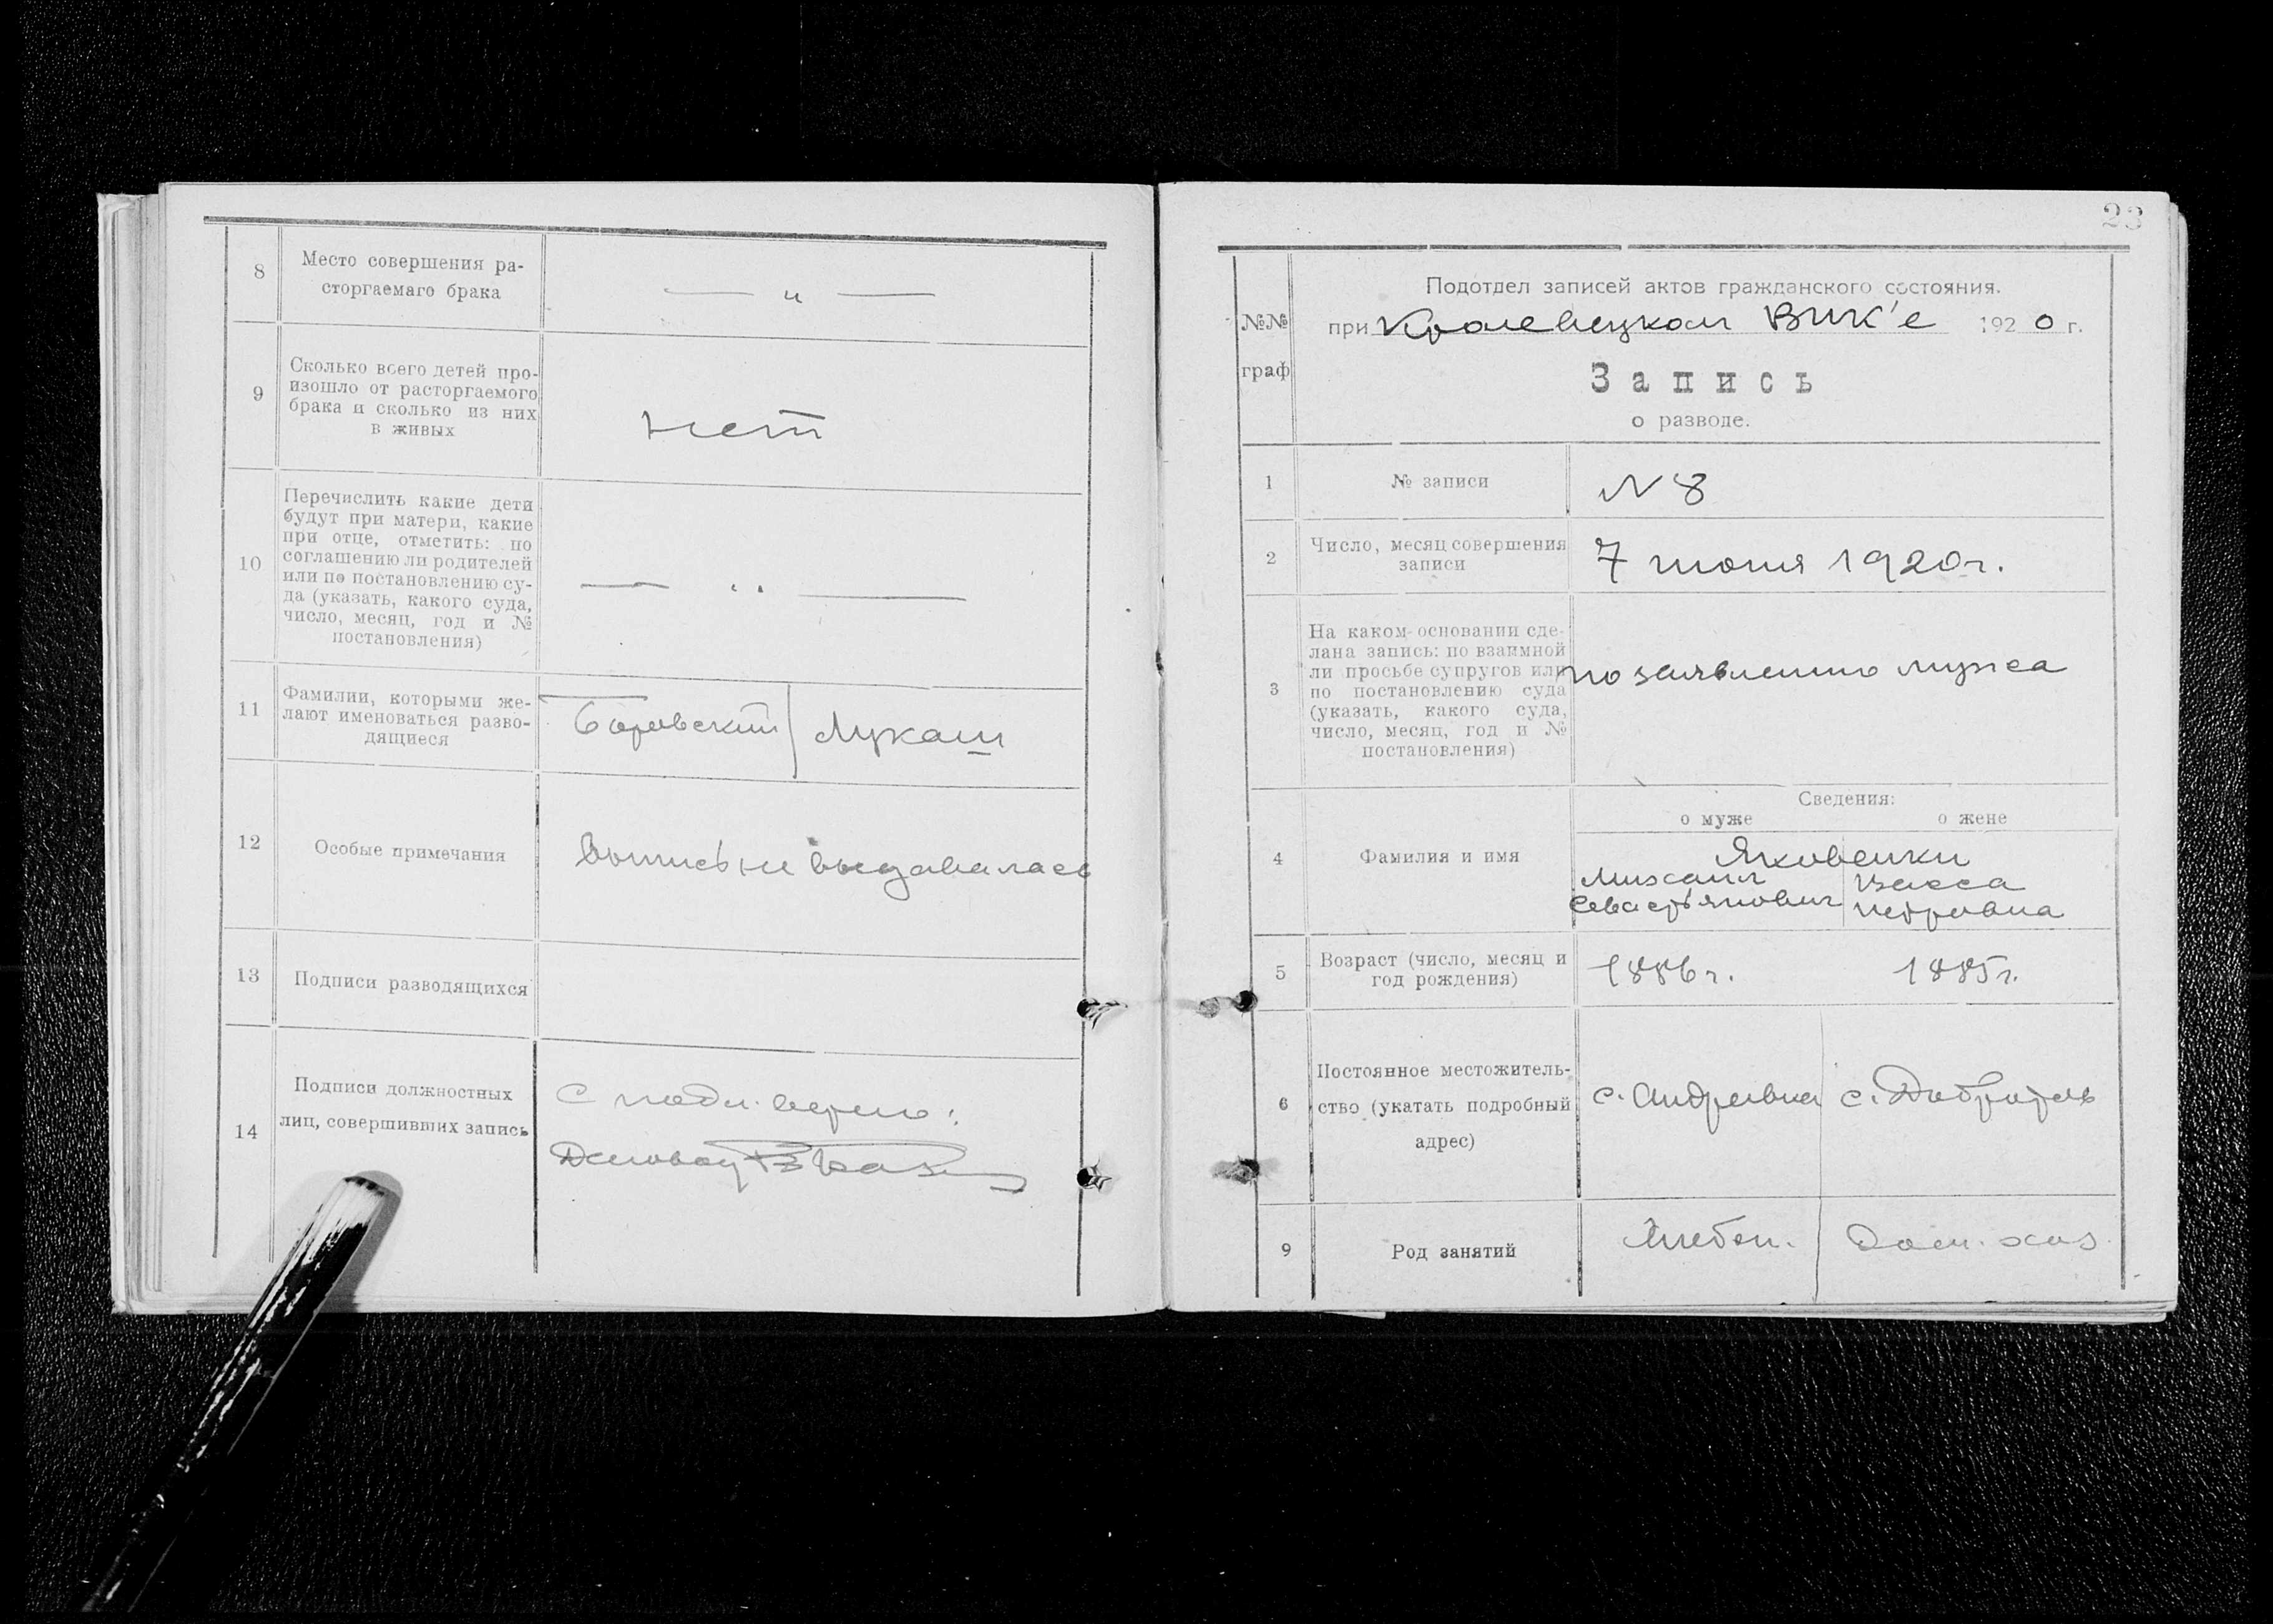 8
Место совершения ра-
сторгаемаго брака
— „ —
9
Сколько всего детей про-
изошло от расторгаемого
брака и сколько из них
в живых
нет
10
Перечислить какие дети
будут при матери, какие
при отце, отметить: по
соглашению ли родителей
или по постановлению су-
да (указать, какого суда,
число, месяц, год и №
постановления)
— „ —
11
Фамилии, которыми же-
лают именоваться разво-
дящиеся
Боровский Лукаш
12
Особые примечания
Выпись не выдавалась
13
Подписи разводящихся
14
Подписи должностных
лиц, совершивших запись
С подл. верно:
23
№№
граф
Подотдел записей актов гражданского состояния.
при Кролевецком ВИК'е 1920 г.
Запись
о разводе.
1
№ записи
N 8
2
Число, месяц совершения
записи
7 июня 1920 г.
3
На каком основании сде-
лана запись: по взаимной
ли просьбе супругов или
по постановлению суда
(указать, какого суда,
число, месяц, год и №
постановления)
по заявлению мужа
4
Фамилия и имя
Сведения:
о муже о жене
Яковенки
Михаил Васса
Севастьянович Петровна
5
Возраст (число, месяц и
год рождения)
1886 г. 1885 г.
6
Постоянное местожитель-
ство (укатать подробный
адрес)
с. Андреевка с. Добротов
9
Род занятий
Хлебоп. Дом. хоз.